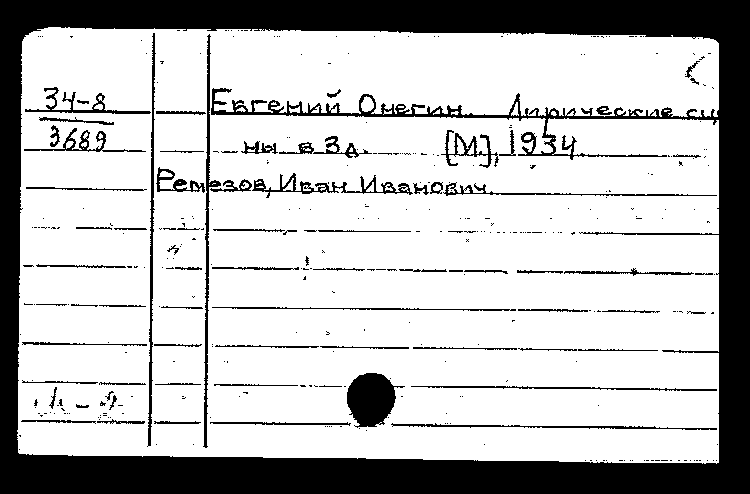 34-8
3689
Евгений Онегин. Лирические сц
ны в 3 д. [М], 1934
Ремезов, Иван Иванович.